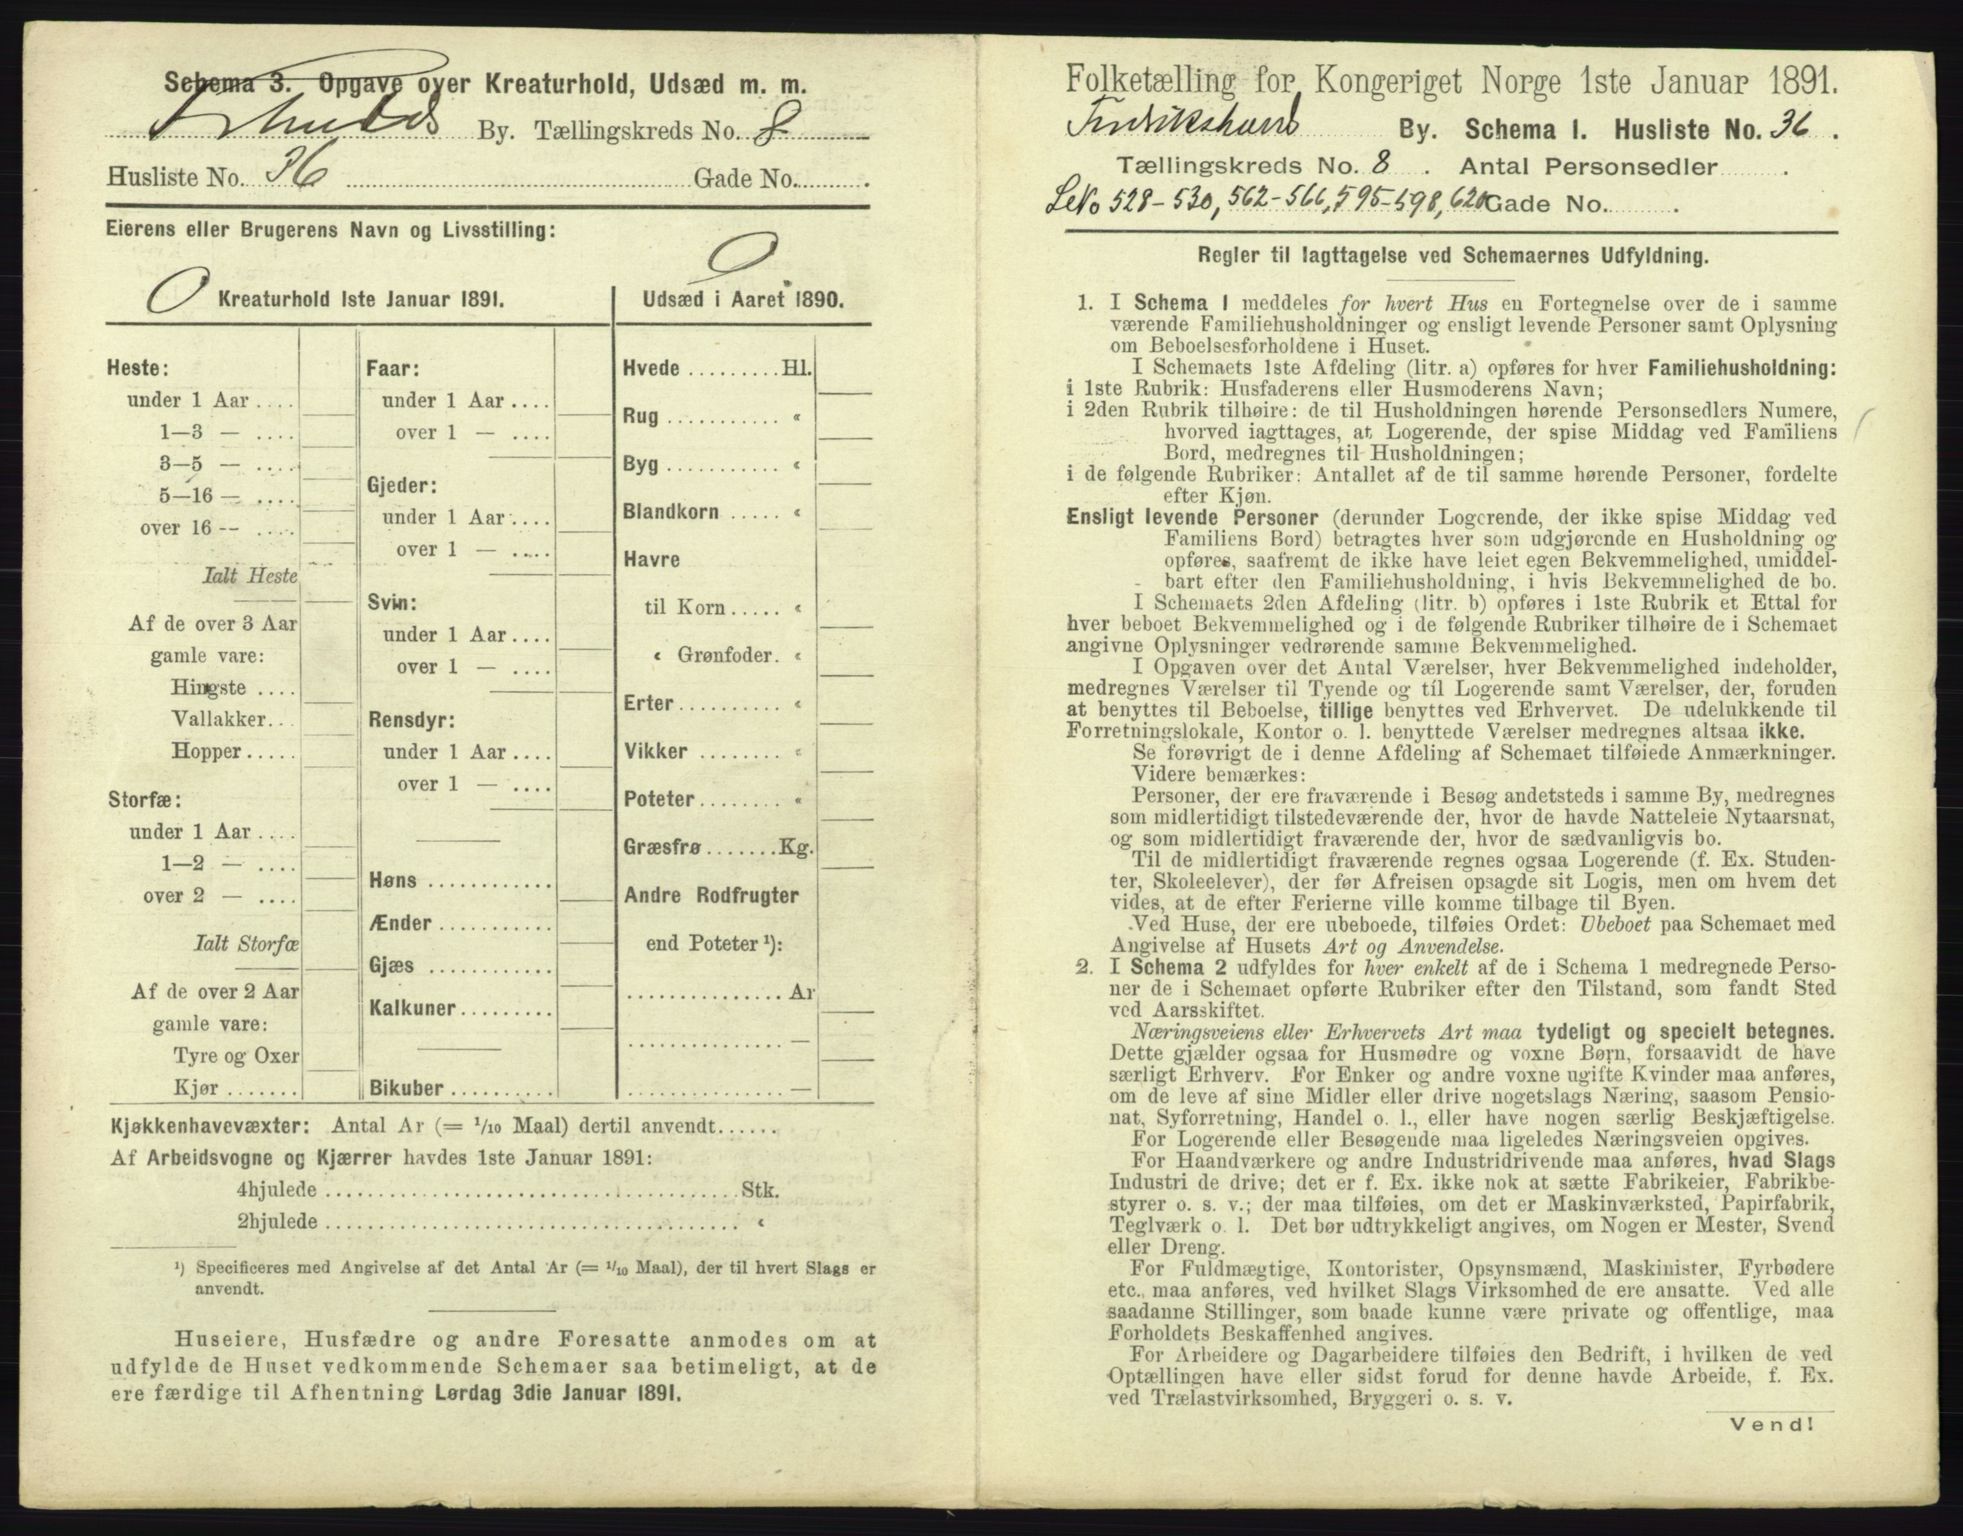 Schema 3. Opgave over Kreaturhold, Udsæd m. m.
By. Tællingskreds No. 8
Husliste No. 36 Gade No. .
Eierens eller Brugerens Navn og Livsstilling:
0 0
Kreaturhold 1ste Januar 1891.
Heste:
under 1 Aar ....
1—3 — ....
3—5 — ....
5—16 — ....
over 16 -- ....
Ialt Heste
Af de over 3 Aar
gamle vare:
Hingste ....
Vallakker...
Hopper.....
Storfæ:
under 1 Aar ....
1—2 — ....
over 2 — ....
Ialt Storfæ
Af de over 2 Aar
gamle vare:
Tyre og Oxer
Kjør .......
Faar:
under 1 Aar ....
over 1 — ....
Gjeder:
under 1 Aar ....
over 1 — ....
Svin:
under 1 Aar ....
over 1 — ....
Rensdyr:
under 1 Aar ....
over 1 — ....
Høns ............
Ænder ...........
Gjæs ............
Kalkuner.........
Bikuber ..........
Udsæd i Aaret 1890.
Hvede .........Hl.
Rug ........... «
Byg ........... «
Blandkorn ..... «
Havre
til Korn..... «
« Grønfoder. «
Erter.......... «
Vikker ........ «
Poteter........ «
Græsfrø .......Kg.
Andre Rodfrugter
end Poteter ¹):
...............Ar
............... —
............... —
Kjøkkenhavevæxter: Antal Ar (= 1/10 Maal) dertil anvendt......
Af Arbeidsvogne og Kjærrer havdes 1ste Januar 1891:
4hjulede ........................................Stk.
2hjulede ........................................ «
¹) Specificeres med Angivelse af det Antal Ar (= 1/10 Maal), der til hvert Slags er
anvendt.
Huseiere, Husfædre og andre Foresatte anmodes om at
udfylde de Huset vedkommende Schemaer saa betimeligt, at de
ere færdige til Afhentning Lørdag 3die Januar 1891.
Folketælling for Kongeriget Norge 1ste Januar 1891.
Fredrikshald By. Schema I. Husliste No. 36 .
Tællingskreds No. 8 . Antal Personsedler .
528-530, 562-566, 595-598, 620 Gade No. .
Regler til Iagttagelse ved Schemaernes Udfyldning.
1. I Schema I meddeles for hvert Hus en Fortegnelse over de i samme
værende Familiehusholdninger og ensligt levende Personer samt Oplysning
om Beboelsesforholdene i Huset.
I Schemaets 1ste Afdeling (litr. a) opføres for hver Familiehusholdning:
i 1ste Rubrik: Husfaderens eller Husmoderens Navn;
i 2den Rubrik tilhøire: de til Husholdningen hørende Personsedlers Numere,
hvorved iagttages, at Logerende, der spise Middag ved Familiens
Bord, medregnes til Husholdningen;
i de følgende Rubriker: Antallet af de til samme hørende Personer, fordelte
efter Kjøn.
Ensligt levende Personer (derunder Logerende, der ikke spise Middag ved
Familiens Bord) betragtes hver som udgjørende en Husholdning og
opføres, saafremt de ikke have leiet egen Bekvemmelighed, umiddel-
bart efter den Familiehusholdning, i hvis Bekvemmelighed de bo.
I Schemaets 2den Afdeling (litr. b) opføres i 1ste Rubrik et Ettal for
hver beboet Bekvemmelighed og i de følgende Rubriker tilhøire de i Schemaet
angivne Oplysninger vedrørende samme Bekvemmelighed.
I Opgaven over det Antal Værelser, hver Bekvemmelighed indeholder,
medregnes Værelser til Tyende og til Logerende samt Værelser, der, foruden
at benyttes til Beboelse, tillige benyttes ved Erhvervet. De udelukkende til
Forretningslokale, Kontor o. l. benyttede Værelser medregnes altsaa ikke.
Se forøvrigt de i denne Afdeling af Schemaet tilføiede Anmærkninger.
Videre bemærkes:
Personer, der ere fraværende i Besøg andetsteds i samme By, medregnes
som midlertidigt tilstedeværende der, hvor de havde Natteleie Nytaarsnat,
og som midlertidigt fraværende der, hvor de sædvanligvis bo.
Til de midlertidigt fraværende regnes ogsaa Logerende (f. Ex. Studen-
ter, Skoleelever), der før Afreisen opsagde sit Logis, men om hvem det
vides, at de efter Ferierne ville komme tilbage til Byen.
Ved Huse, der ere ubeboede, tilføies Ordet: Ubeboet paa Schemaet med
Angivelse af Husets Art og Anvendelse.
2. I Schema 2 udfyldes for hver enkelt af de i Schema 1 medregnede Perso-
ner de i Schemaet opførte Rubriker efter den Tilstand, som fandt Sted
ved Aarsskiftet.
Næringsveien eller Erhvervets Art maa tydeligt og specielt betegnes.
Dette gjælder ogsaa for Husmødre og voxne Børn, forsaavidt de have
særligt Erhverv. For Enker og andre voxne ugifte Kvinder maa anføres,
om de leve af sine Midler eller drive nogetslags Næring, saasom Pensio-
nat, Syforretning, Handel o. l., eller have nogen særlig Beskjæftigelse.
For Logerende eller Besøgende maa ligeledes Næringsveien opgives.
For Haandværkere og andre Industridrivende maa anføres, hvad Slags
Industri de drive; det er f. Ex. ikke nok at sætte Fabrikeier, Fabrikbe-
styrer o. s. v.; der maa tilføies, om det er Maskinværksted, Papirfabrik,
Teglværk o. l. Det bør udtrykkeligt angives, om Nogen er Mester, Svend
eller Dreng.
For Fuldmægtige, Kontorister, Opsynsmænd, Maskinister, Fyrbødere
etc. maa anføres, ved hvilket Slags Virksomhed de ere ansatte. Ved alle
saadanne Stillinger, som baade kunne være private og offentlige, maa
Forholdets Beskaffenhed angives.
For Arbeidere og Dagarbeidere tilføies den Bedrift, i hvilken de ved
Optællingen have eller sidst forud for denne havde Arbeide, f. Ex.
ved Trælastvirksomhed, Bryggeri o. s. v.
Vend!